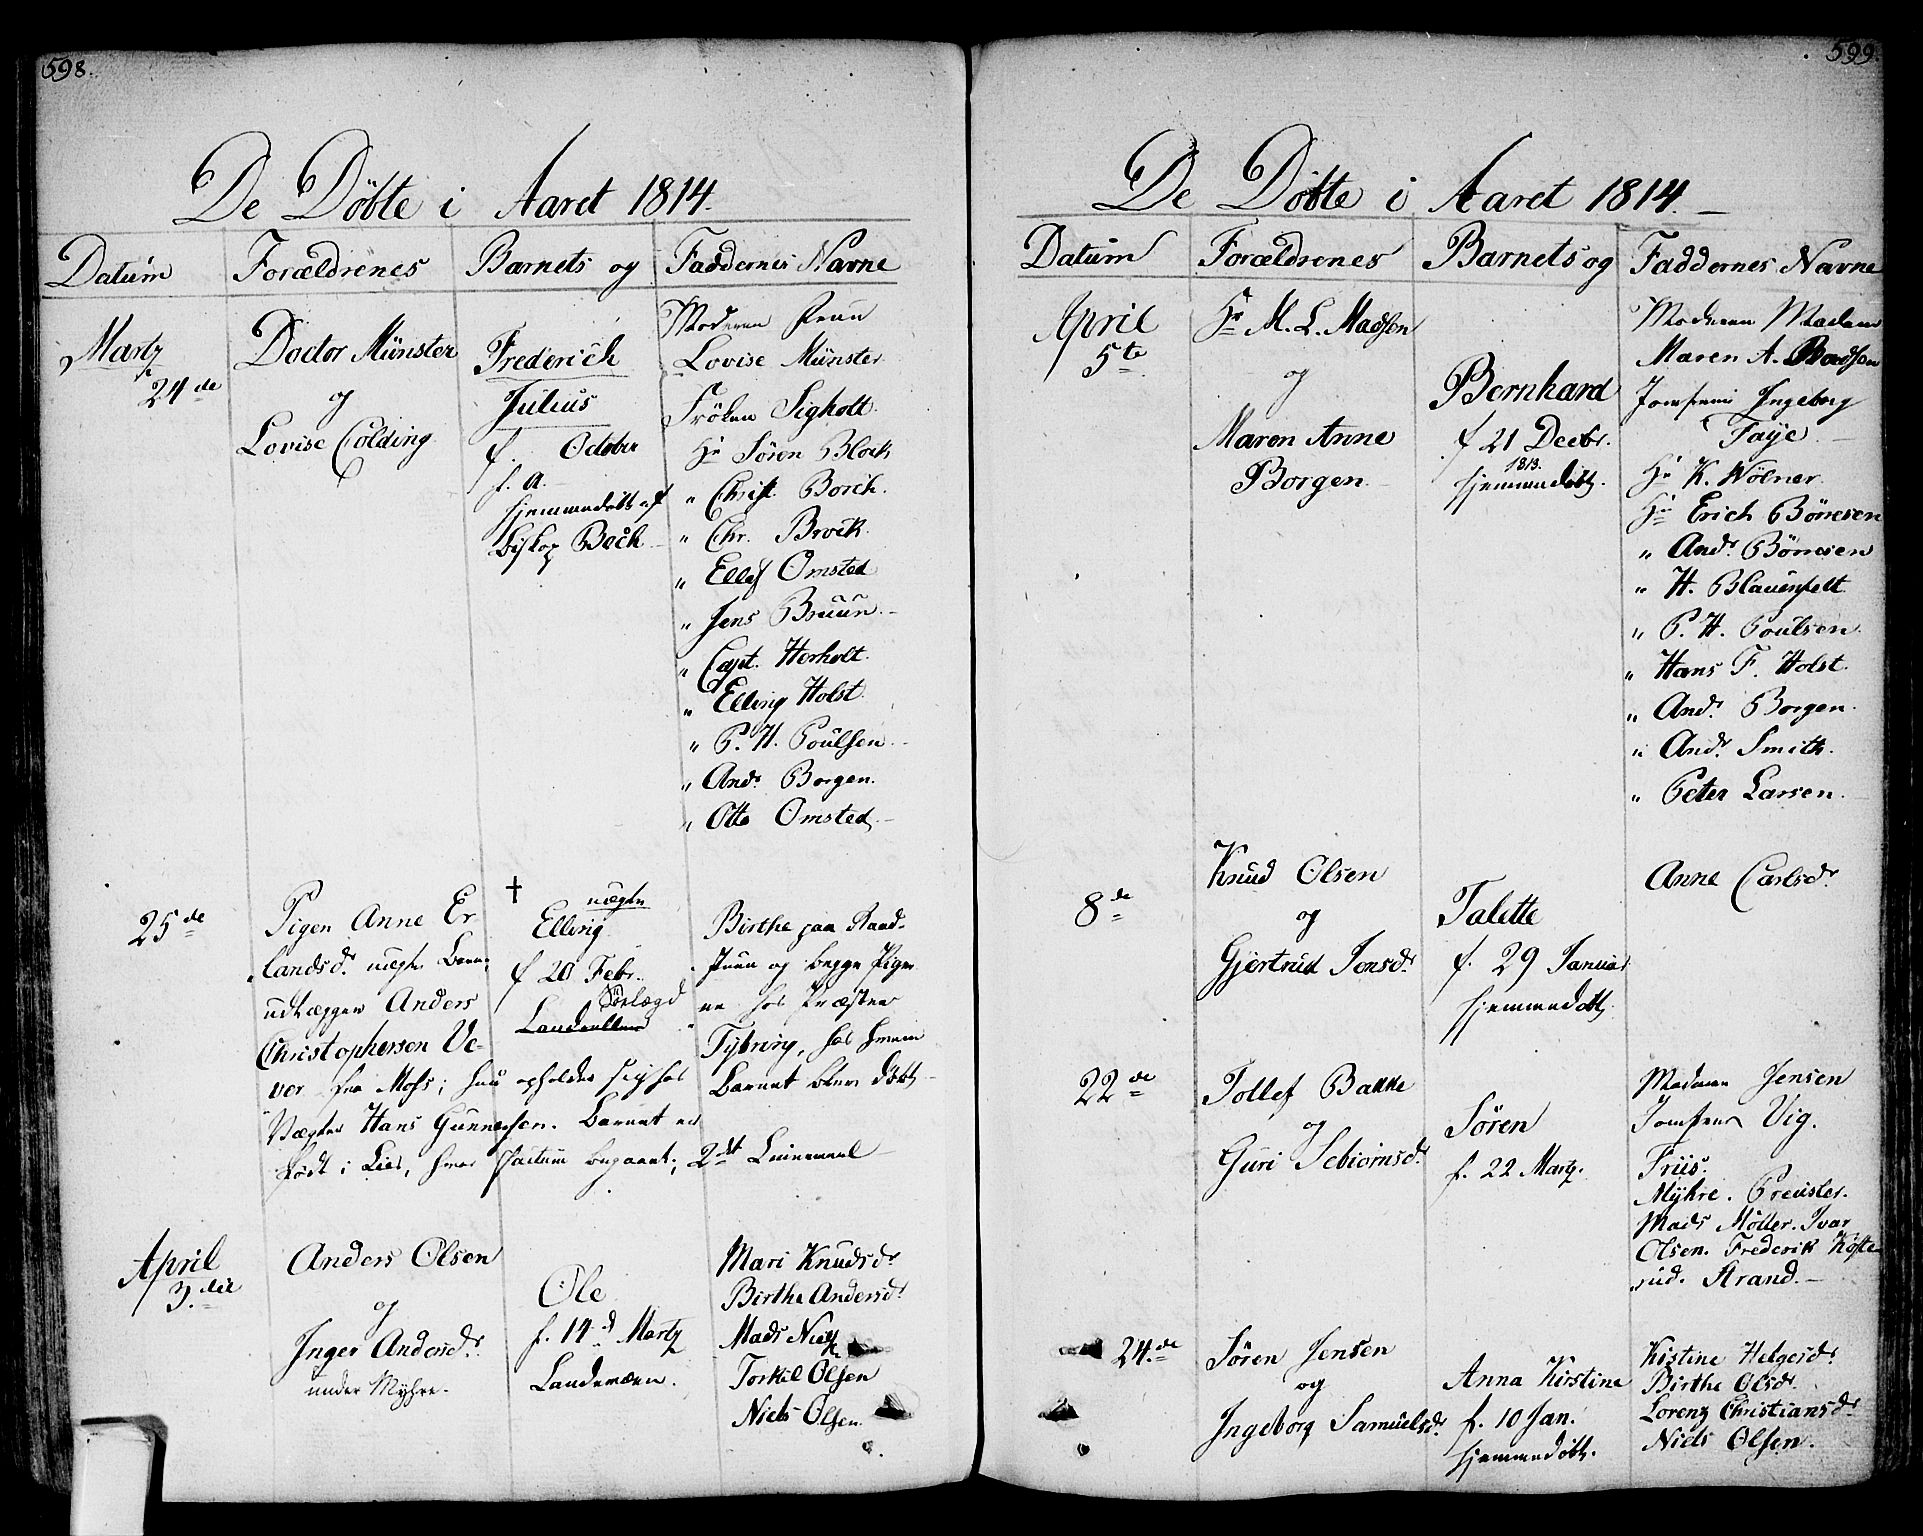 598.
De Döbte i Aaret 1814.
Datum Forældrenes Barnets og Faddernes Navne
Martz
24de
Doctor Münster
og
Lovise Colding
Frederich
Julius
f. October
f. a.
hjemmedøbt af
biskop Bech
Moderen Fruu
Lovise Münster
Fröken Sigholt.
Hr Sören Block
" Christ. Borch.
" Chr. Brock.
" Ellef Omsted
" Jens Bruun.
" Capt. Herholt.
" Elling Holst.
" P. H. Poulsen.
" Ands Borgen.
" Otto Omsted.
25de
Pigen Anne Er
landsdr uægte Barn,
udlægger Anders
Christophersen Ve-
ver fra Moss; hun opholder sig hos
Vægter Hans Gunnersen. Barnet er
født i Lier, hvor Factum begaaet; 2det Leiermaal
† uægte
Elling
f 20 Febr.
Sörlægd
Birthe paa Strand-
stuen og begge Piger
ne hos Præsten
Tybring, hos hvem
Barnet blev døbt
April
3die
Anders Olsen
og
Inger Andersdr.
under Myhre.
Ole
f. 14d Martz
Landeveien.
Mari Knudsdr
Birthe Andersdr
Mads
Torkil Olsen
Niels Olsen.
599.
De Döbte i Aaret 1814.
Datum Forældrenes Barnets og Faddernes Navne
April
5te
Hr M. L. Madsen
og
Maren Anne
Borgen
Bernhard
f 21 Decbr.
1813.
hjemmedøbt.
Moderen Madam
Maren A. Madsen
Jomfru Ingeborg
Faye.
Hr K. Wölner.
Hr Erich Börresen
" Ands Börresen
" H. Blauenfelt
" P. H. Poulsen.
" Hans F. Holst.
" Ands Borgen.
" Ands Smith.
" Peter Larsen.
8de
Knud Olsen
og
Gjertrud Jensdr
Talette
f. 29 Januar
hjemmedøbt
Anne Carlsdr
22de
Tollef Bakke
og
Guri Sebiornsdr
Sören
f. 22 Martz.
Madame Jensen
Jomfru Vig.
Friis.
Myhre. Preuster.
Mads Möller. Ivar
Olsen. Frederik Köste
rud. Strand.
24de
Sören Jensen
og
Ingeborg Samuelsdr
Anna Kirstine
f. 10 Jan.
hjemmedøbt.
Kistine Helgersdr
Birthe Olsdr.
Lorentz Christiansdr
Niels Olsen.